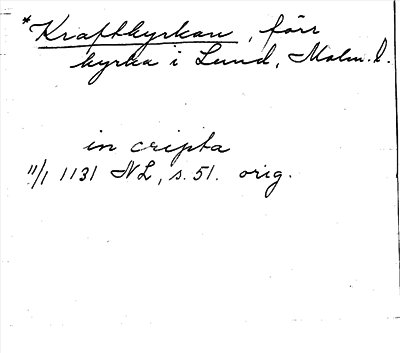 *Kraftkyrkan, förr
kyrka i Lund, Malm. l.
in cripta
11/1 1131 NL, s. 51. orig.